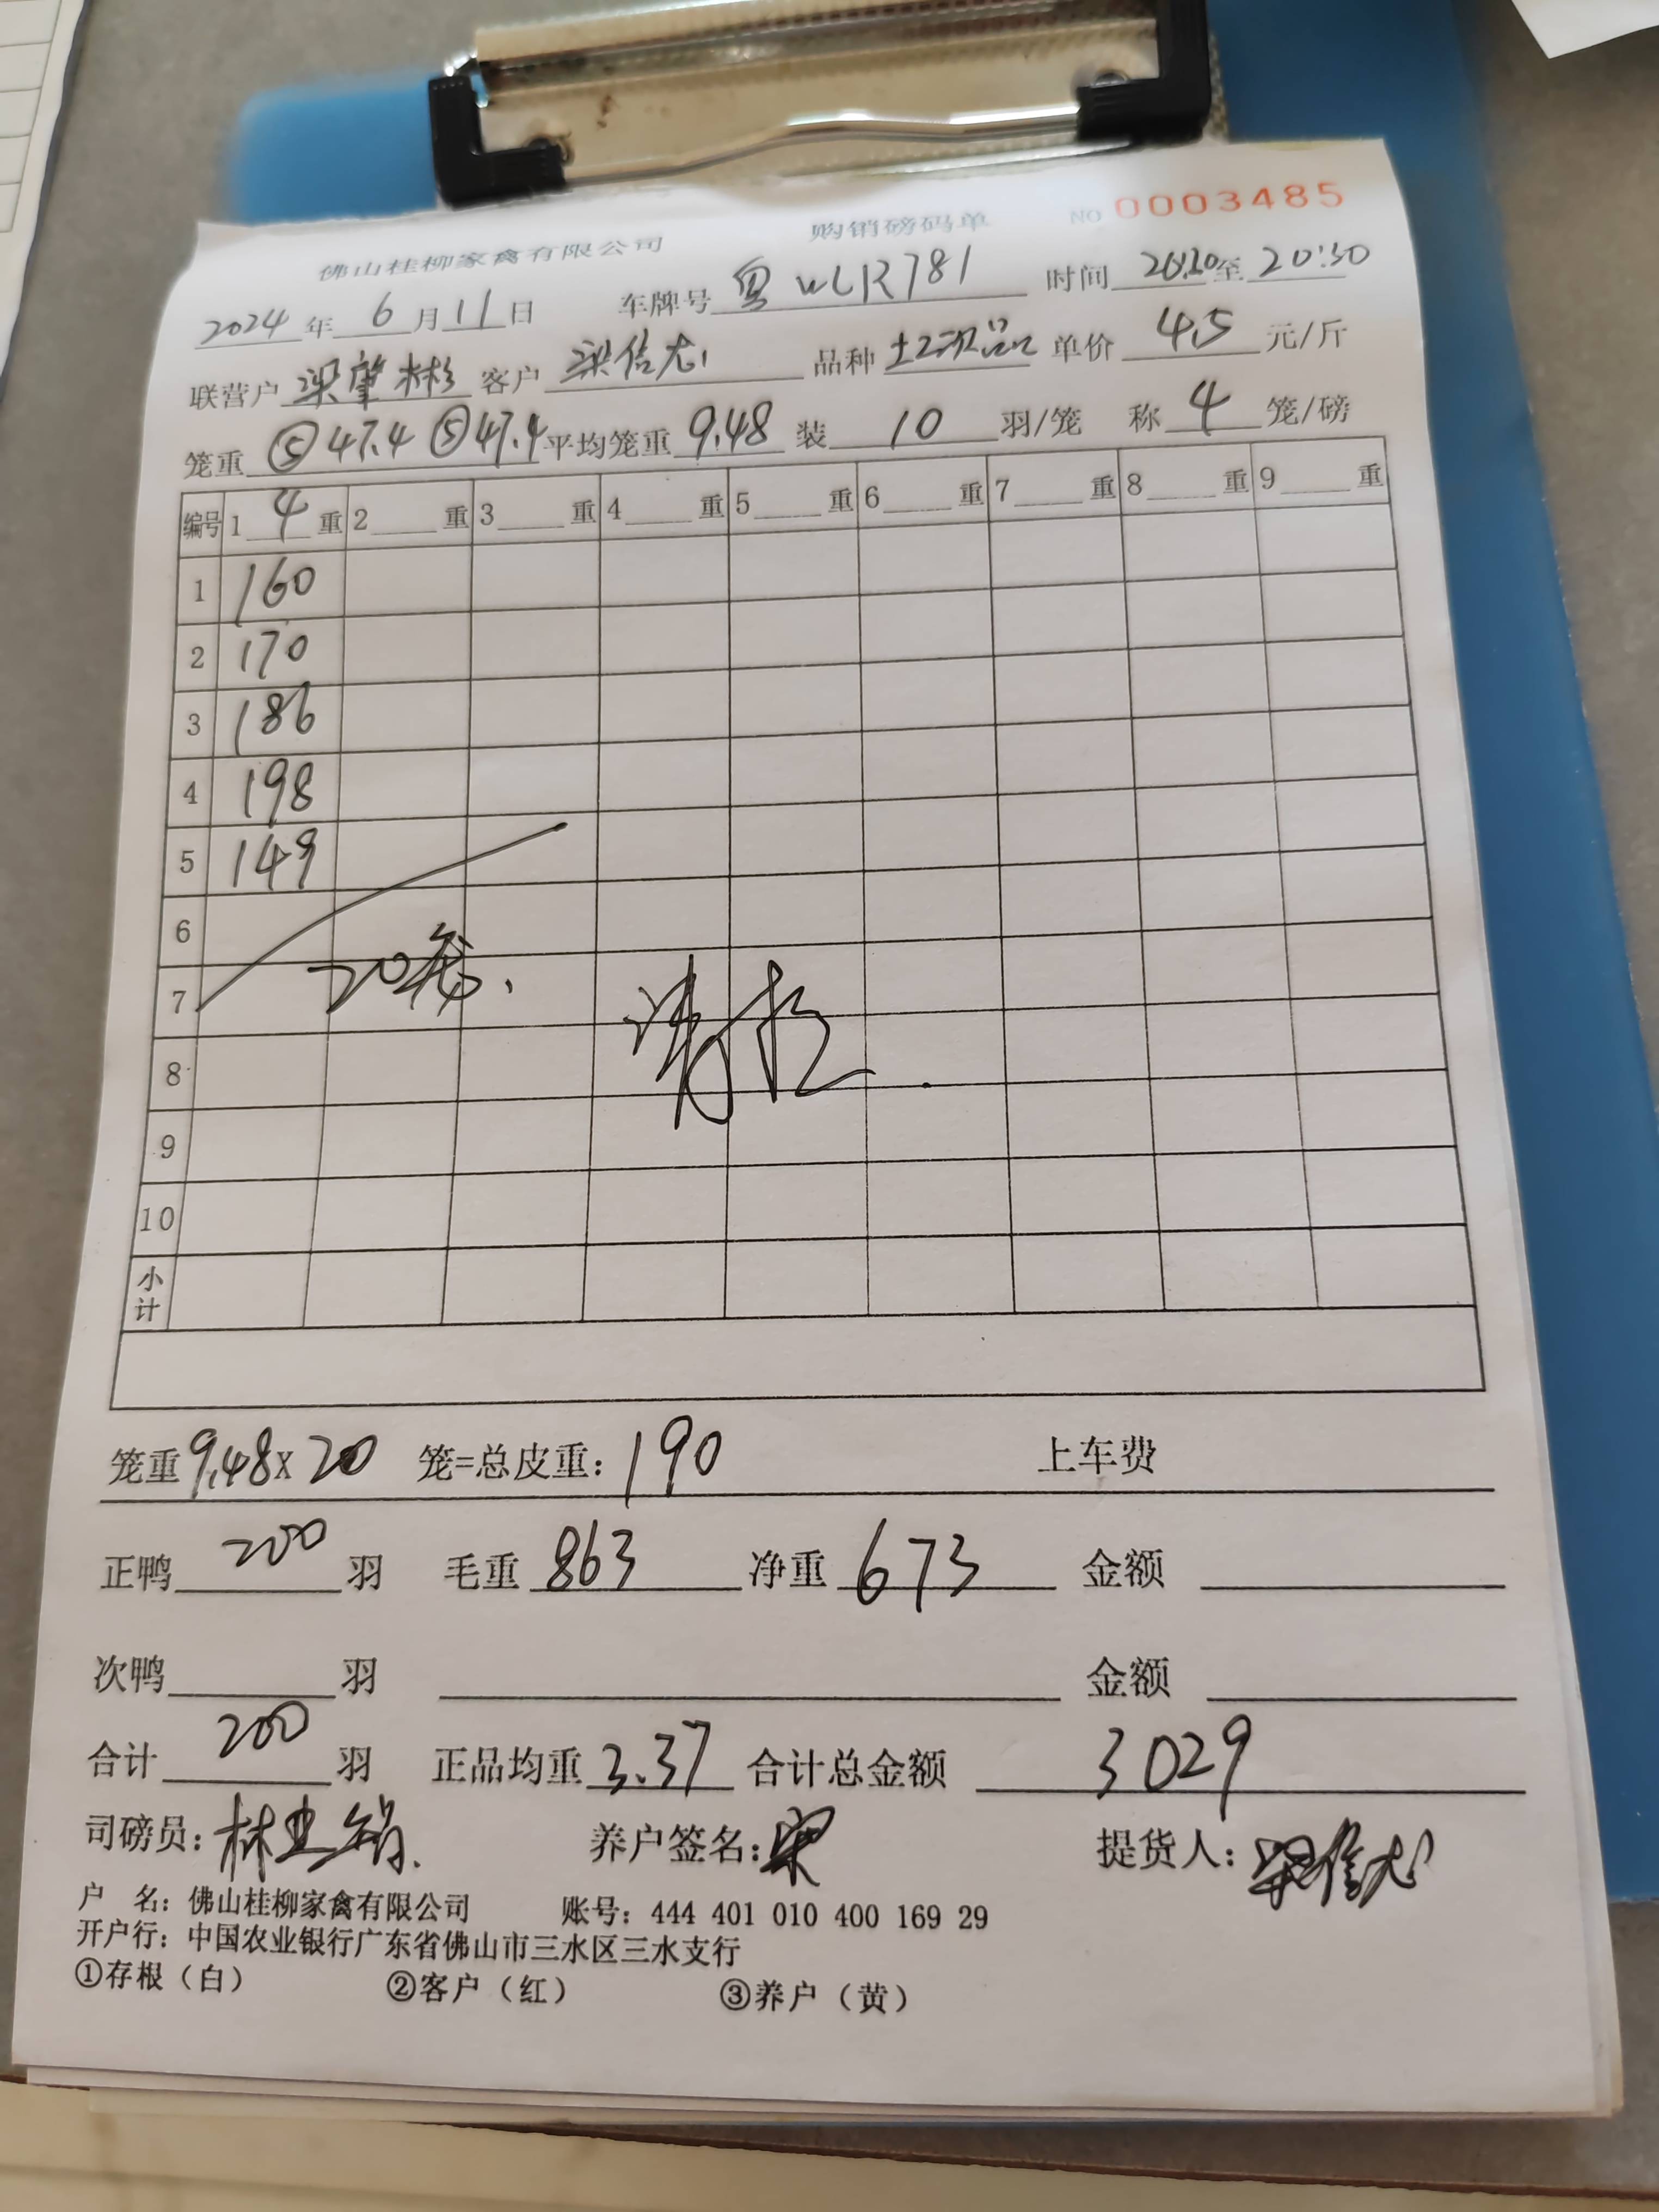 佛山桂柳家禽有限公司 购销磅码单 NO 0003485
2024 年 6 月 11 日 车牌号 粤WLR781 时间 20:20 至 20:30
联营户 梁肇彬 客户 梁信志 品种 土2次品 单价 4.5 元/斤
笼重 ⑤47.4 ⑤47.4 平均笼重 9.48 装 10 羽/笼 称 4 笼/磅
编号 1 4 重 2 重 3 重 4 重 5 重 6 重 7 重 8 重 9 重
1 160
2 170
3 186
4 198
5 149
6
7 20笼.
8
9
10
小计
笼重 9.48 x 20 笼=总皮重: 190 上车费
正鸭 200 羽 毛重 863 净重 673 金额
次鸭 羽 金额
合计 200 羽 正品均重 3.37 合计总金额 3029
司磅员: 林业娟 养户签名: 梁 提货人: 梁信志
户 名: 佛山桂柳家禽有限公司 账号: 444 401 010 400 169 29
开户行: 中国农业银行广东省佛山市三水区三水支行
①存根（白） ②客户（红） ③养户（黄）